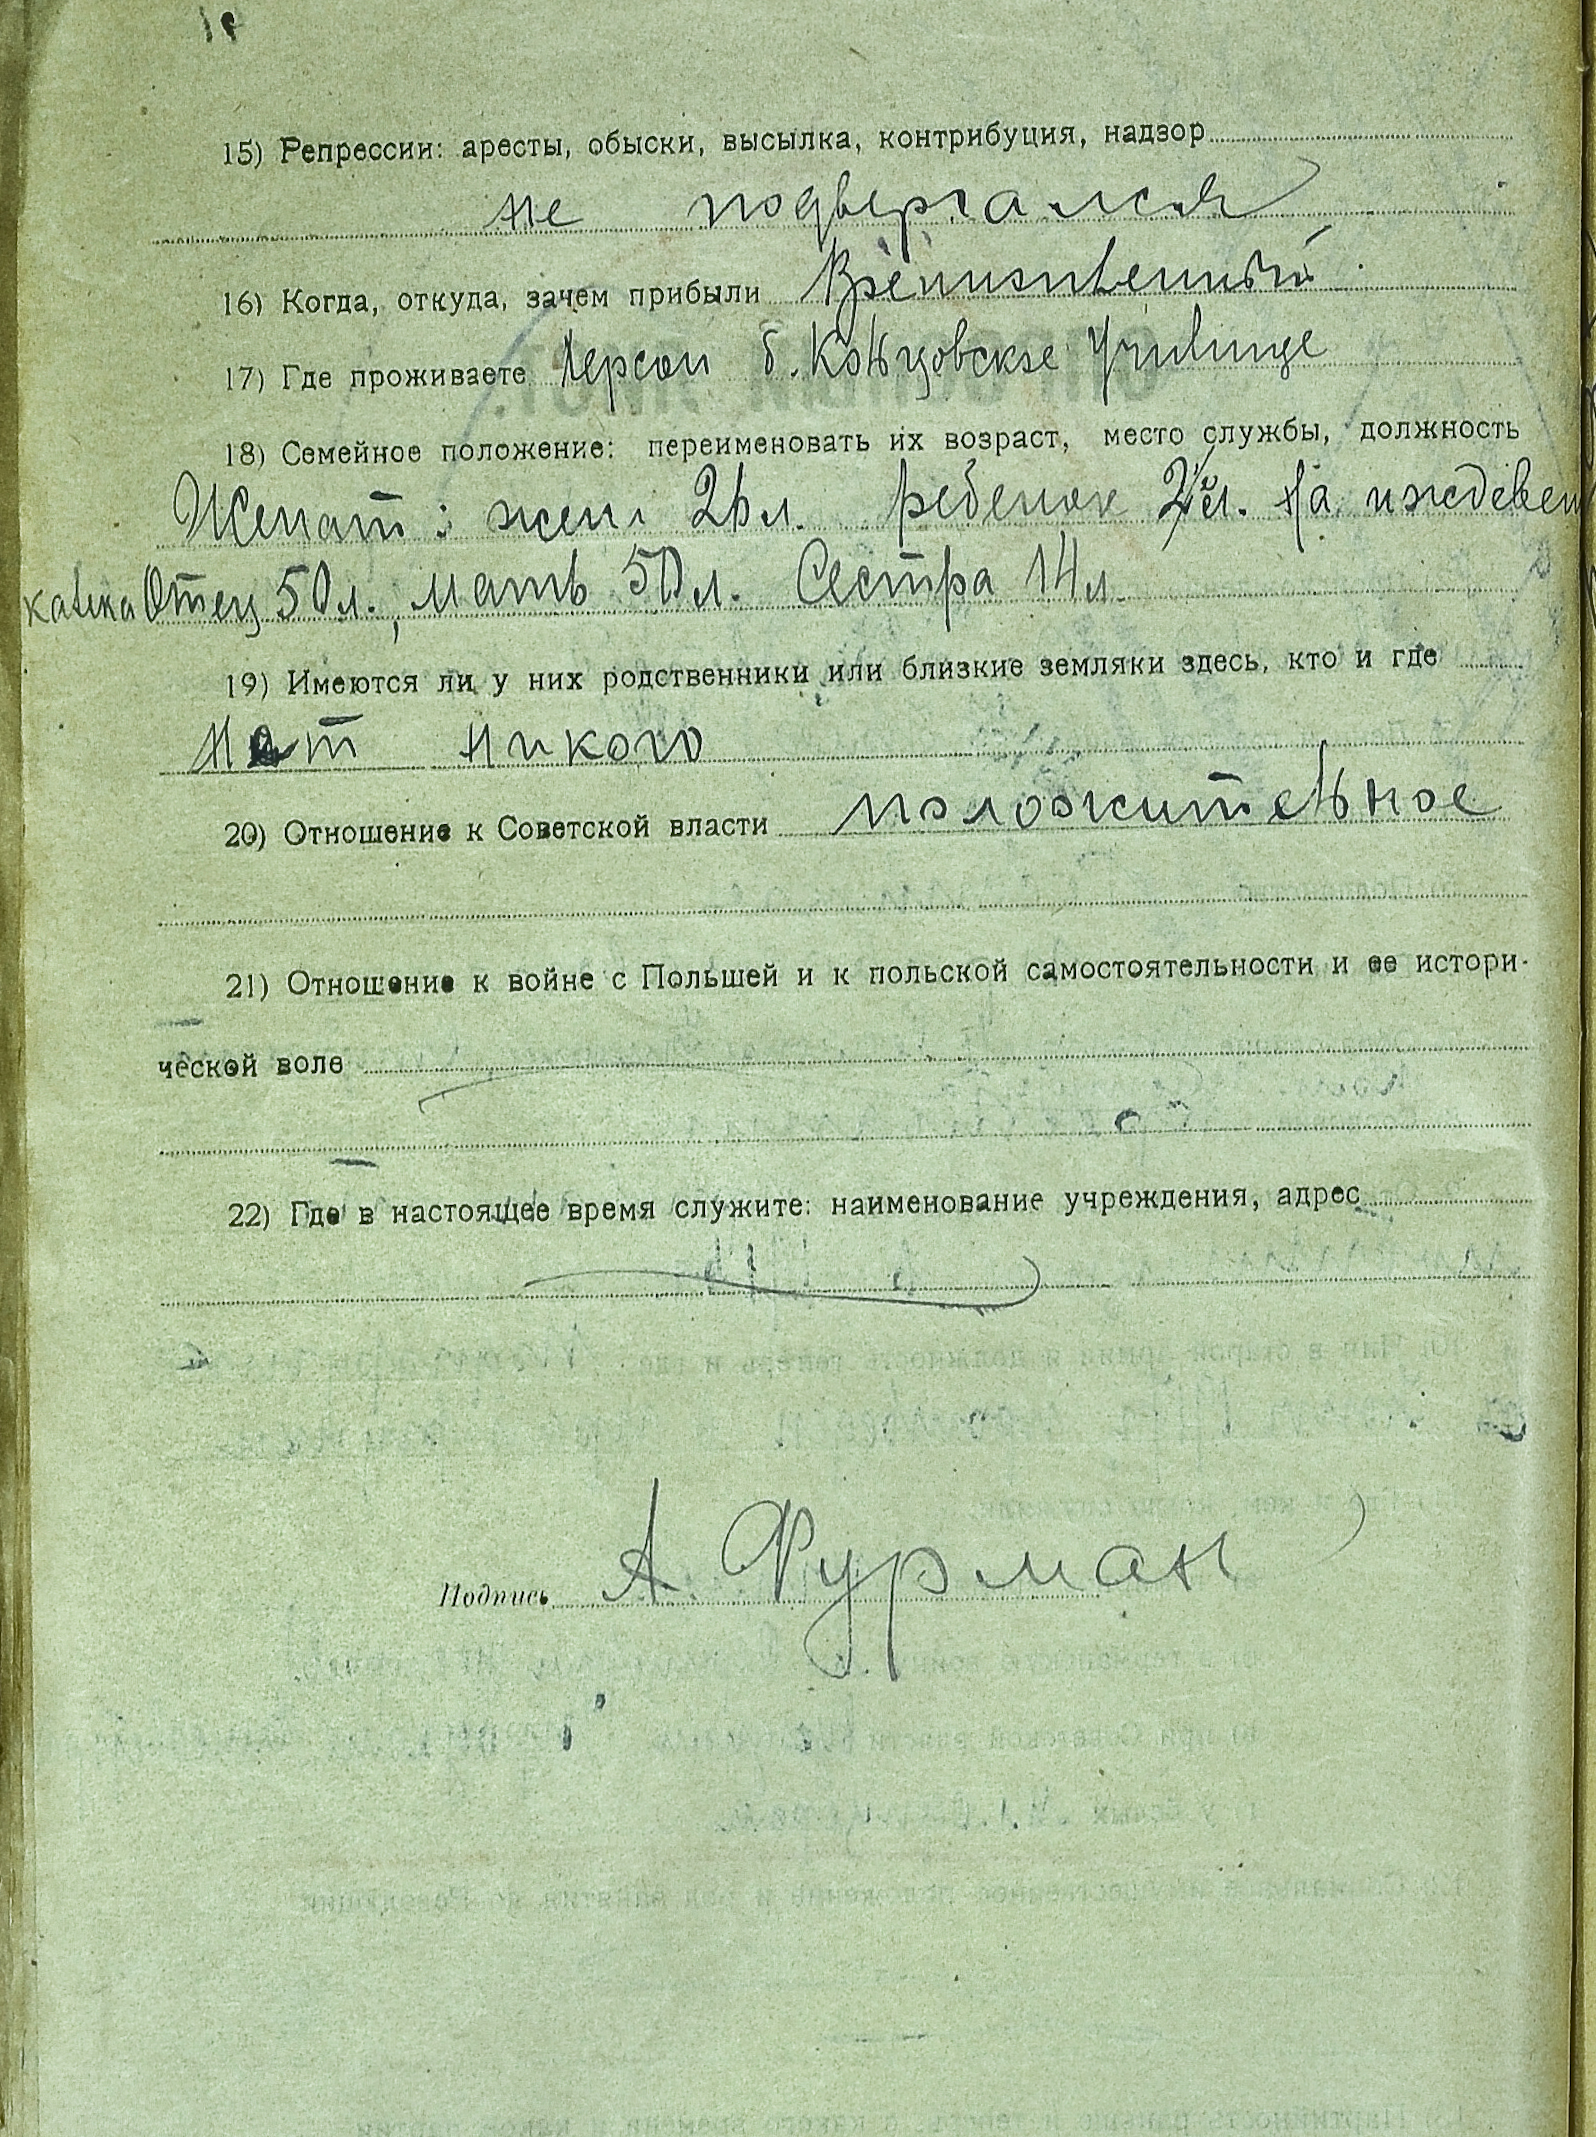 15) Репрессии: аресты, обыски, высылка, контрибуция, надзор
не подвергался
16) Когда, откуда, зачем прибыли
17) Где проживаете Херсон б. Училище
18) Семейное положение: переименовать их возраст, место службы, должность
Женат: жена л. ребенок На иждевен
Отец 50 л., мать 50 л. Сестра 14 л.
19) Имеются ли у них родственники или близкие земляки здесь, кто и где
Нет никого
20) Отношение к Советской власти положительное
21) Отношение к войне с Польшей и к польской самостоятельности и ее истори-
ческой воле
22) Где в настоящее время служите: наименование учреждения, адрес
Подпись А. Фурман